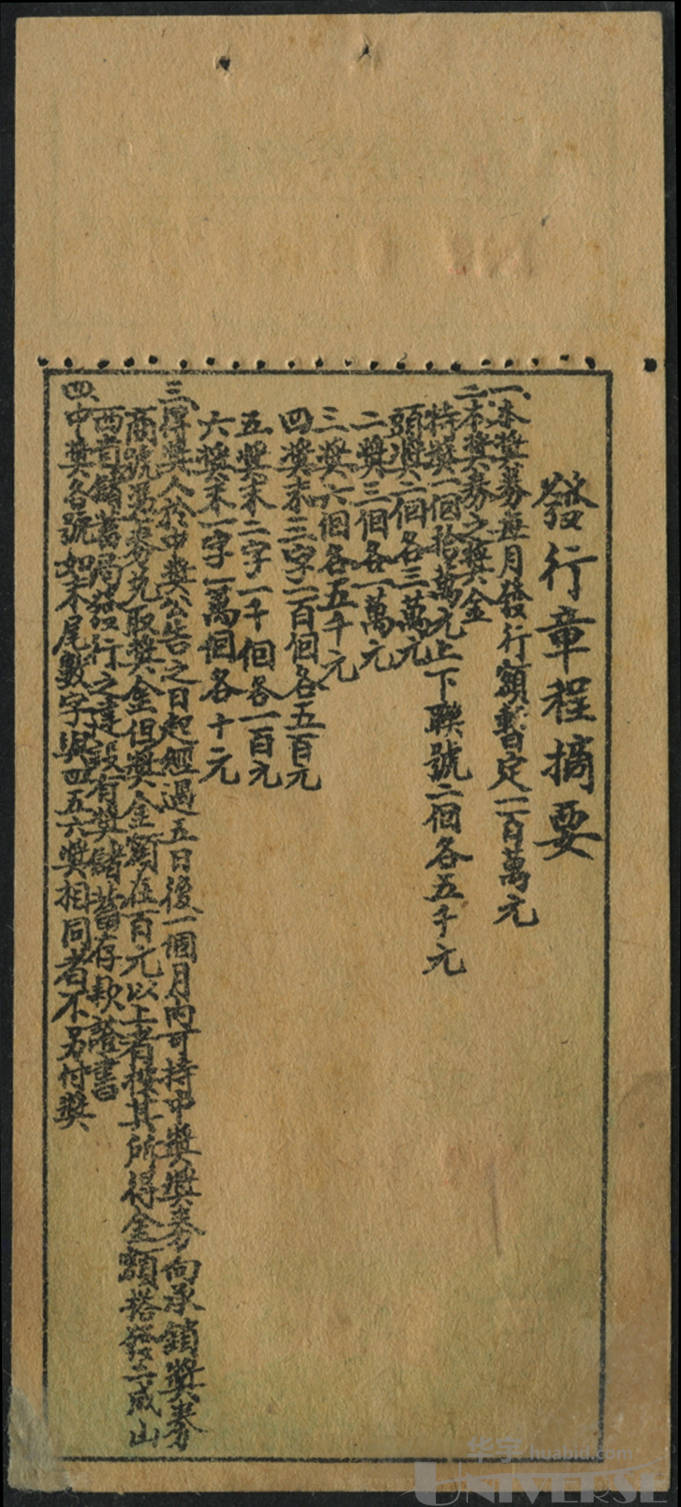 發行章程摘要
一、本獎券每月發行額暫定一百萬元
二、本獎券之獎金
特獎一個拾萬元上下聯號二個各五千元
頭獎二個各三萬元
二獎三個各一萬元
三獎六個各五千元
四獎末三字一百個各五百元
五獎末二字一千個各一百元
六獎末一字一萬個各十元
三、得獎人於中獎公告之日起經過五日後一個月內可持中獎獎券向承銷獎券
商號憑券兌取獎金但獎金額在百元以上者按其所得金額搭發二成山
西省儲蓄局發行之建設有獎儲蓄存款證書
四、中獎各號如末尾數字與四五六獎相同者不另付獎
华宇 huabid.com
UNIVERSE